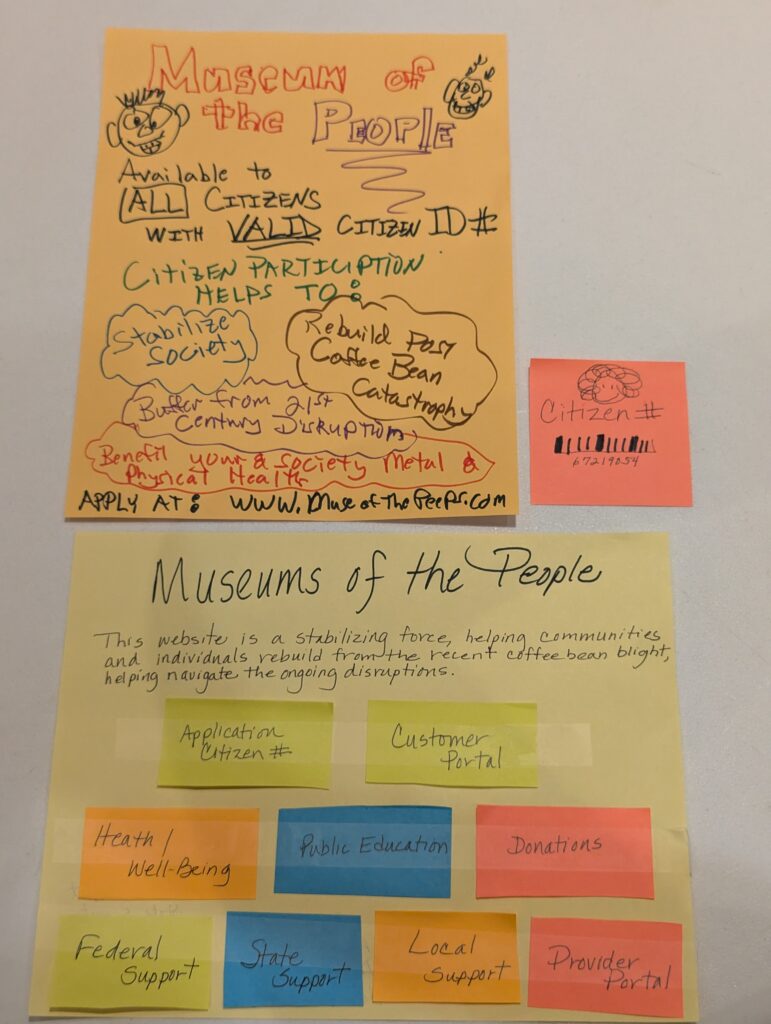 Museum of
the People
Available to
ALL Citizens
with VALID Citizen ID #
Citizen Particiption
Helps to:
Stabilize
Society
Rebuild Post
Coffee Bean
Catastrophy
Buffer from 21st
Century Disruptions
Benefit your & society Metal &
Physical Health
Apply at: www.MuseofThePeeps.com
Citizen #
67219054
Museums of the People
This website is a stabilizing force, helping communities
and individuals rebuild from the recent coffee bean blight,
helping navigate the ongoing disruptions.
Application
Citizen #
Customer
Portal
Heath /
Well-Being
Public Education
Donations
Federal
Support
State
Support
Local
Support
Provider
Portal